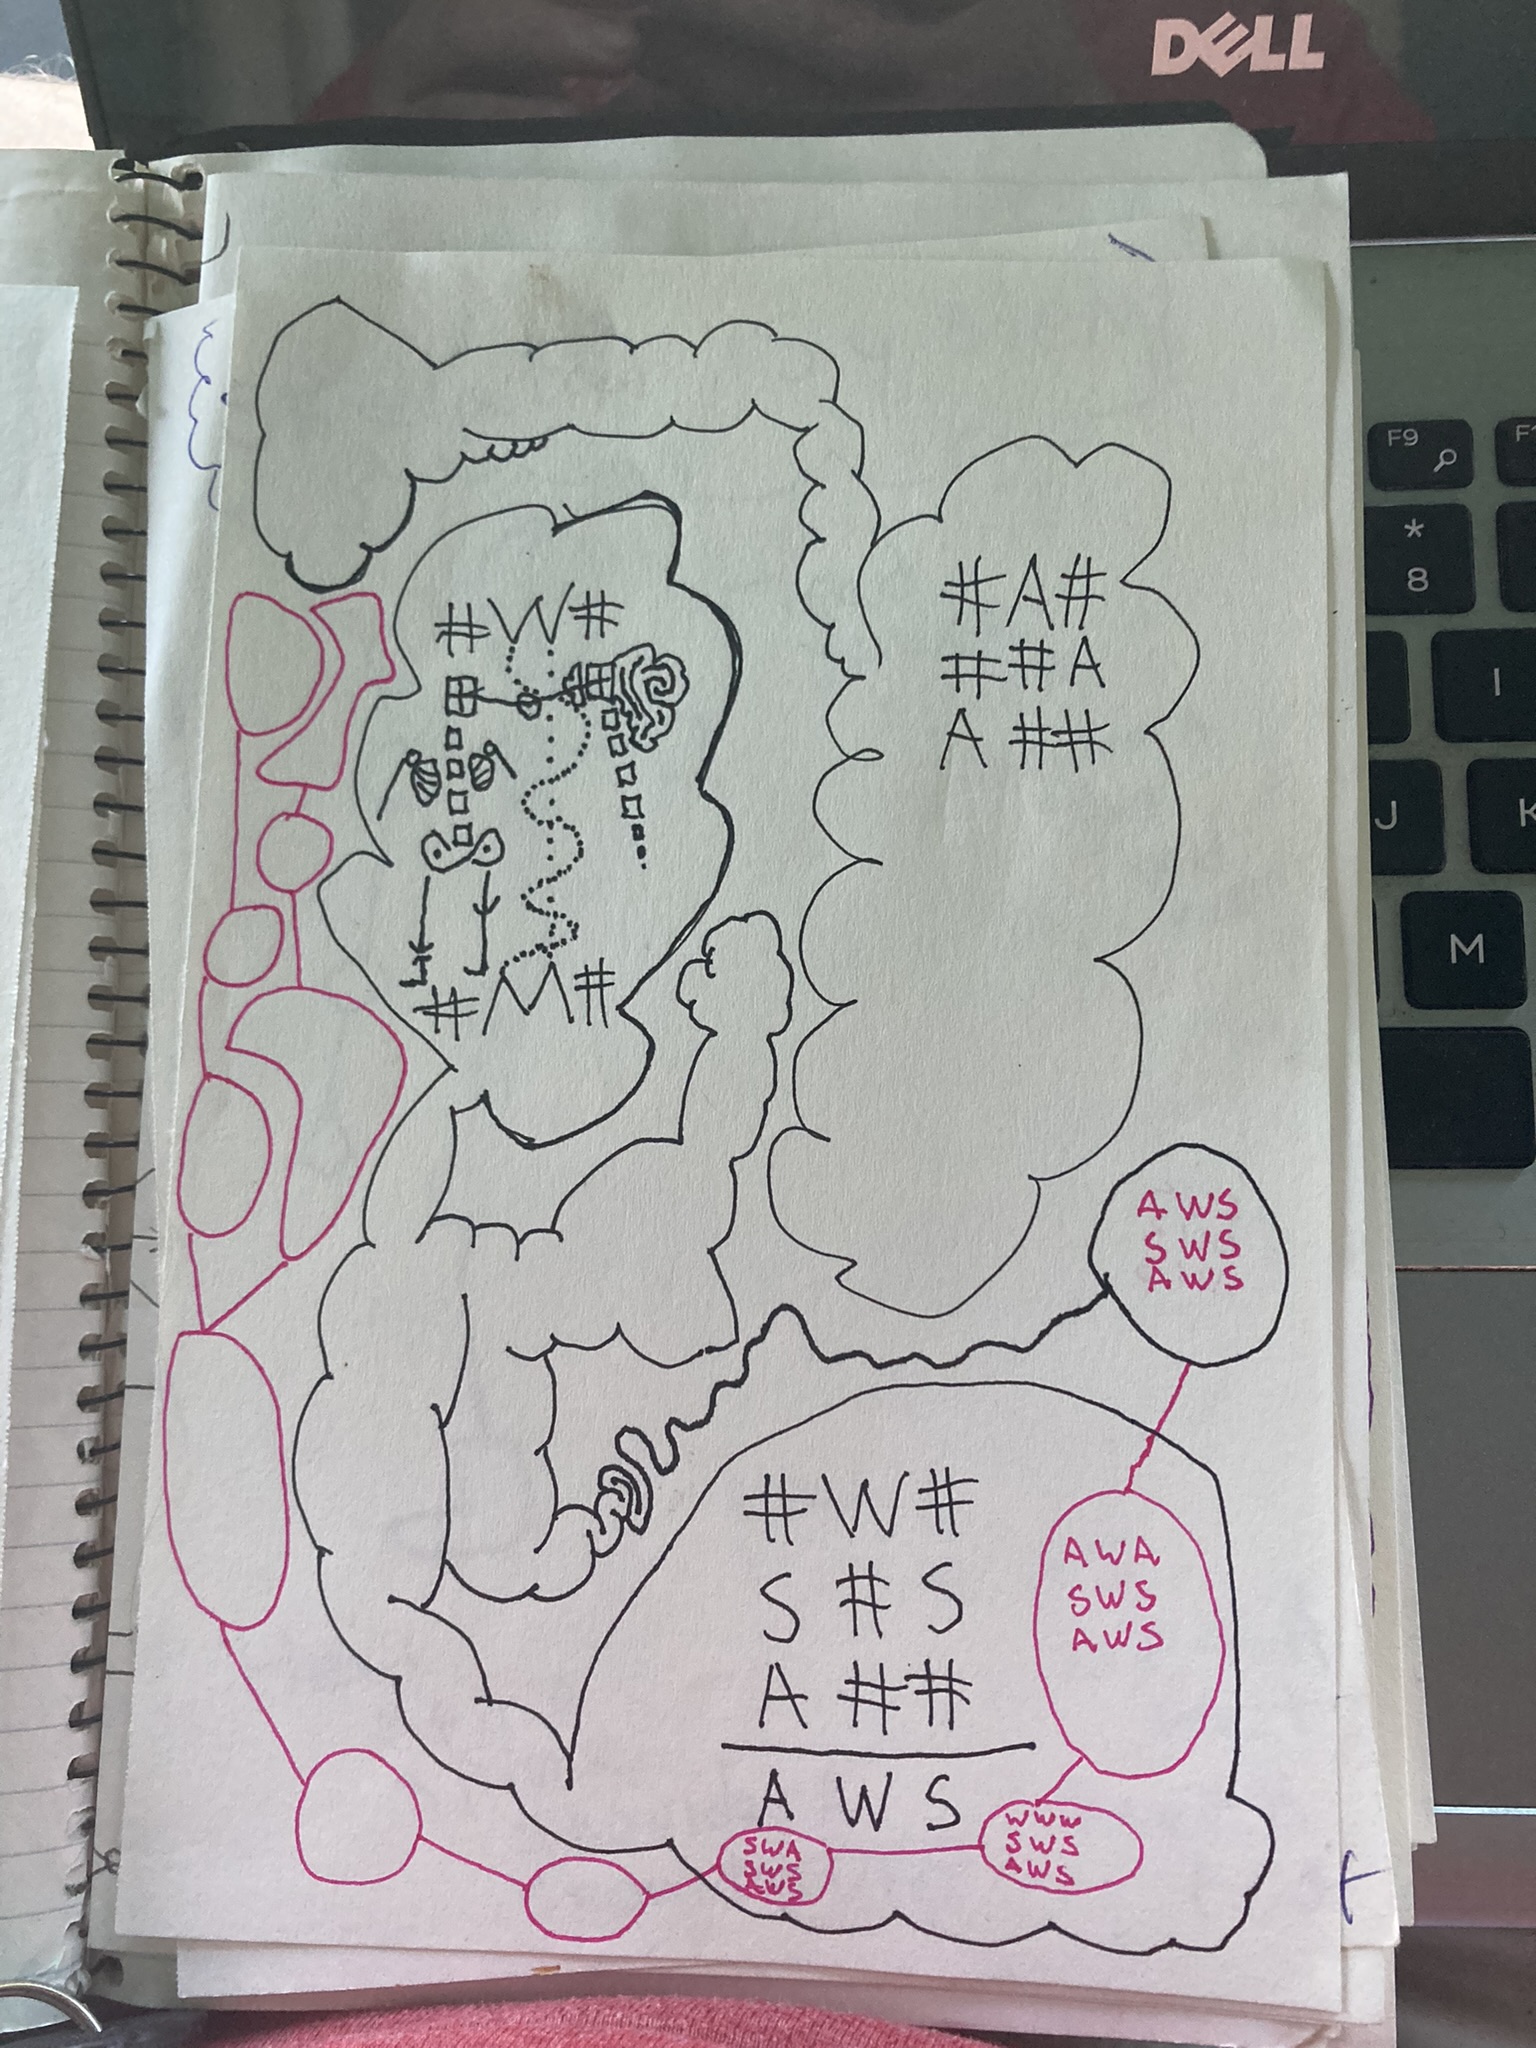 DELL
F9
*
8
I
J
K
M
#W#
#M#
#A#
##A
A##
AWS
SWS
AWS
#W#
S#S
A##
AWS
AWA
SWS
AWS
WWW
SWS
AWS
SWA
SWS
AWS